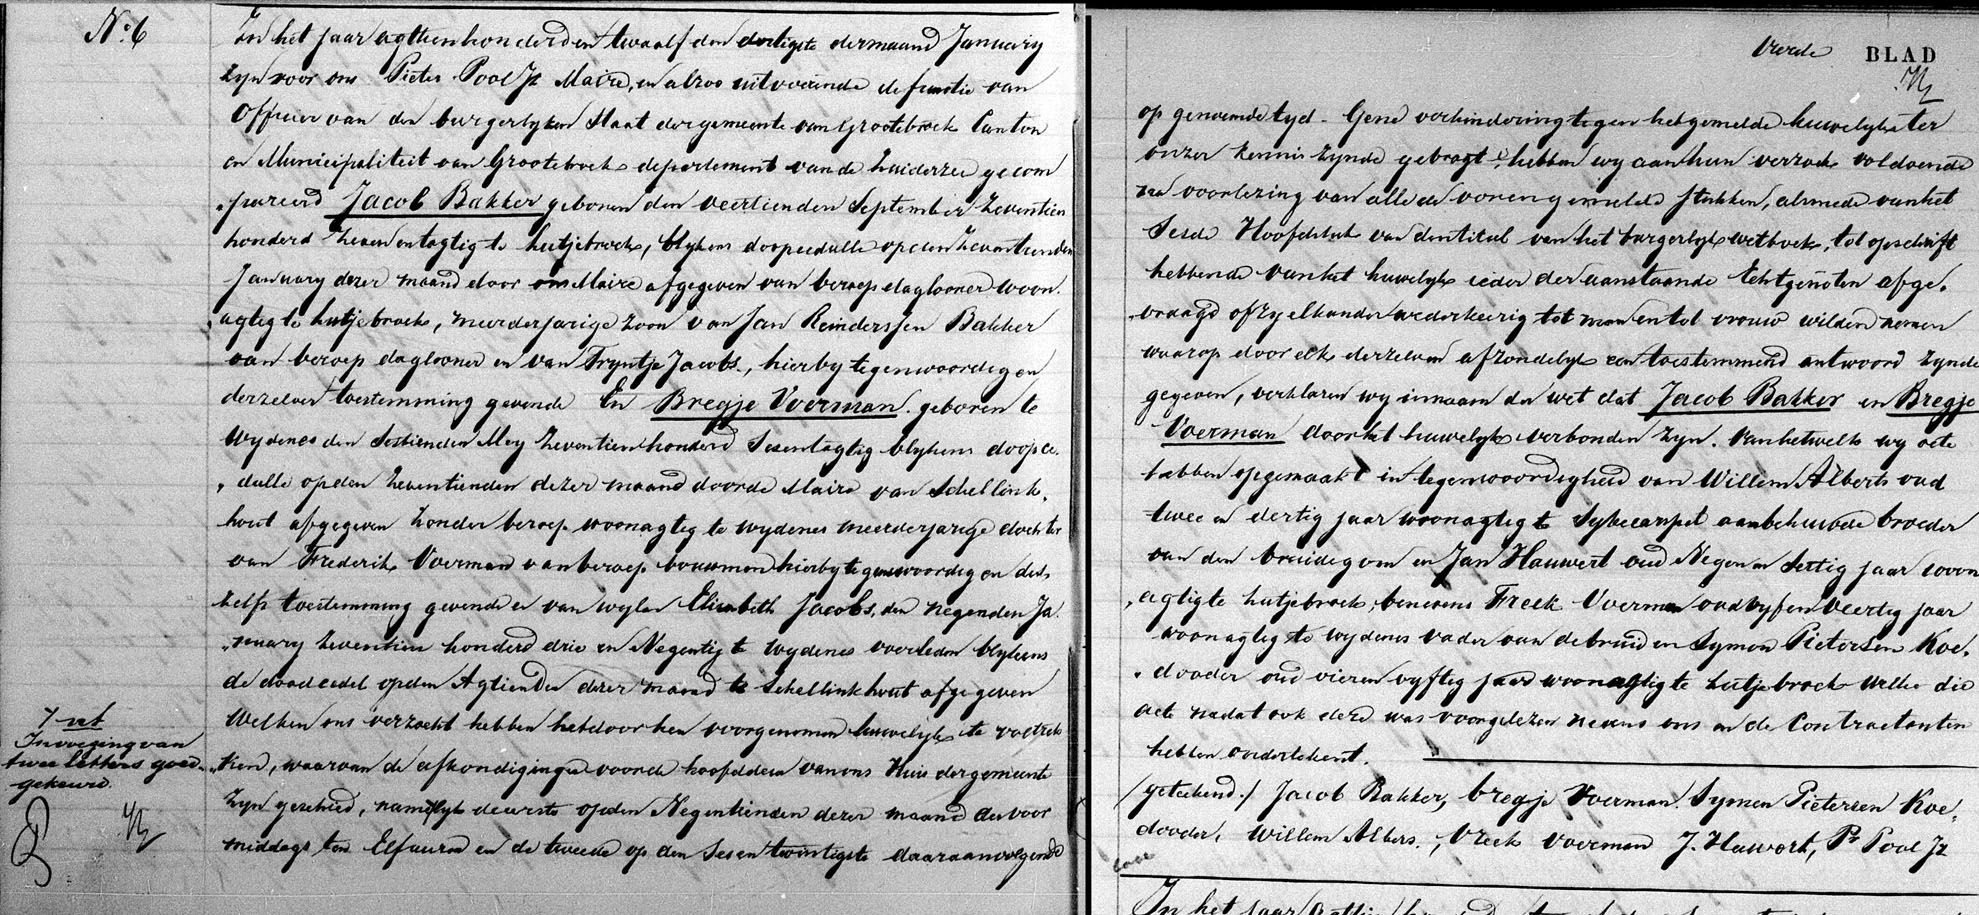 No. 6
In het jaar agttienhonderd en twaalf den dertigste der maand January
zyn voor ons Pieter Pool Jz Maire, en alzoo uitvoerende de functie van
Officier van den burgerlyken Staat der gemeente van Grootebroek Canton
en Municipaliteit van Grootebroek departement van de Zuiderzee gecom
„pareerd Jacob Bakker geboren den veertienden September zeventien
honderd zeven en tagtig te hutjebroek, blykens doopcedulle op den zeventienden
January dezer maand door ons Maire afgegeven van beroep daglooner woon
„agtig te hutjebroek, meerderjarige zoon van Jan Reindersjen Bakker
van beroep daglooner en van Tryntje Jacobs, hierby tegenwoordig en
derzelver toestemming gevende En Bregje Voerman geboren te
Wydenes den Sestienden Mey zeventienhonderd Sesentagtig blykens doopce
„dulle op den zeventienden dezer maand door de Maire van Schellink„
hout afgegeven zonder beroep woonagtig te wydenes meerderjarige dochter
van Frederik Voerman van beroep bouwman hierby tegenwoordig en des„
zelfs toestemming gevende en van wylen Elizabeth Jacobs, den negenden Ja
„nuary zeventien honderd drie en Negentig te Wydenes overleden blykens
de doodcedel op den Agtienden dezer maand te Schellinkhout afgegeven
Welken ons verzocht hebben het door hen voorgenomen huwelyk te voltrek
„ken, waarvan de afkondigingen voor de hoofddeur van ons Huis der gemeente
zyn geschied, namelyk de eerste op den Negentienden dezer maand des voor
middags ten Elf uuren en de tweede op den Sesentwintigste daaraanvolgende
Invoeging van
twee letters goed„
gekeurd.
Vierde BLAD
op genoemde tyd - Gene verhindering tegen het gemelde huwelyk ter
onzer kennis zynde gebragt, hebben wy aan hun verzoek voldoende
na voorlezing van alle de voren gemelde stukken, alsmede van het
Sesde Hoofdstuk van den titul van het burgerlyk wetboek, tot opschrift
hebbende van het huwelyk ieder der aanstaande Echtgenoten afge„
„vraagd of zy elkander wederkeerig tot man en tot vrouw wilden nemen
waarop door elk derzelven afzonderlyk een toestemmend antwoord zynde
gegeven, verklaren wy in naam der wet dat Jacob Bakker en Bregje
Voerman door het huwelyk verbonden zyn. Van hetwelk wy acte
hebben opgemaakt in tegenwoordigheid van Willem Alberts oud
twee en dertig jaar woonagtig te Sybecarspel aanbehuwde broeder
van den bruidegom en Jan Hauwert oud Negen en Sestig jaar woon
„agtig te hutjebroek, benevens Freek Voerman oud vyf en veertig jaar
woonagtig te wydenes vader van de bruid en Symon Pietersen Koe„
„dooder oud vier en vyftig jaar woonagtig te hutjebroek welke die
acte nadat ook deze was voorgelezen nevens ons en de Contractanten
hebben ondertekent.
(geteekend) Jacob Bakker, bregje Voerman, Symen Pietersen Koe„
dooder, Willem Albers, Vreek Voerman J. Hauwert, Pr Pool Jz
In het jaar